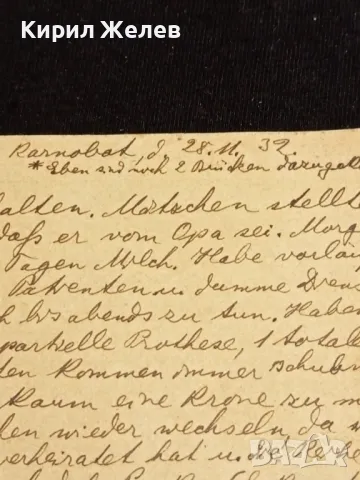 Кирил Желев
Karnobat, d. 28.11.39.
*Eben sind noch 2 Brücken dazugek
halten. Mätzchen stellte
daß er vom Opa sei. Morg
Tagen Milch. Habe vorläu
Patienten u. dumme
h bis abends zu tun. Haben
partielle Prothese, 1 totale
den kommen immer
Kaum eine Krone zu m
len wieder wechseln da
verheiratet hat u.
bazar